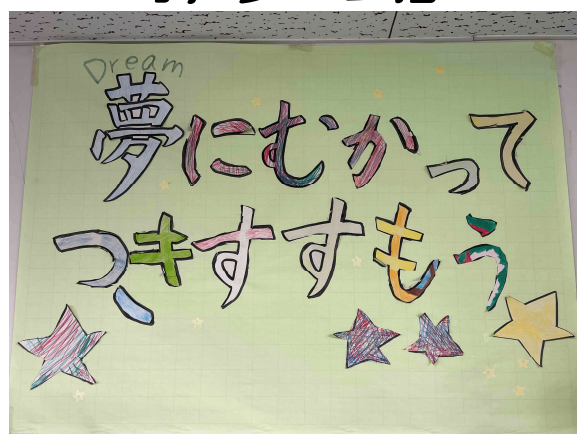 Dream
夢にむかって
つきすすもう